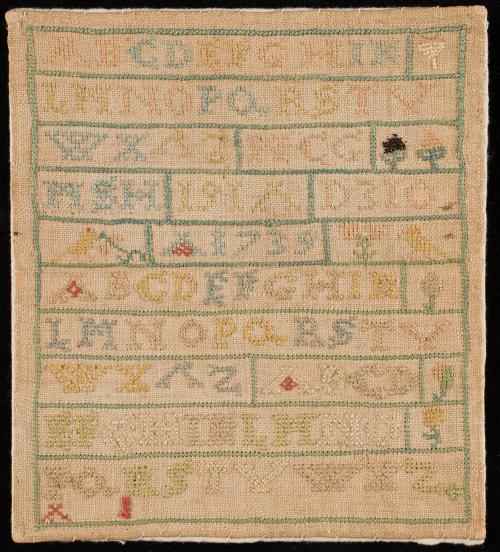 ABCDEFGHIK
LMNOPQRSTV
WXYZ MCG
MSH
A 1739
ABCDEFGHIK
LMNOPQRSTV
WXYZ ABCD
EFGHIKLMNO
PQRSTVWXYZ